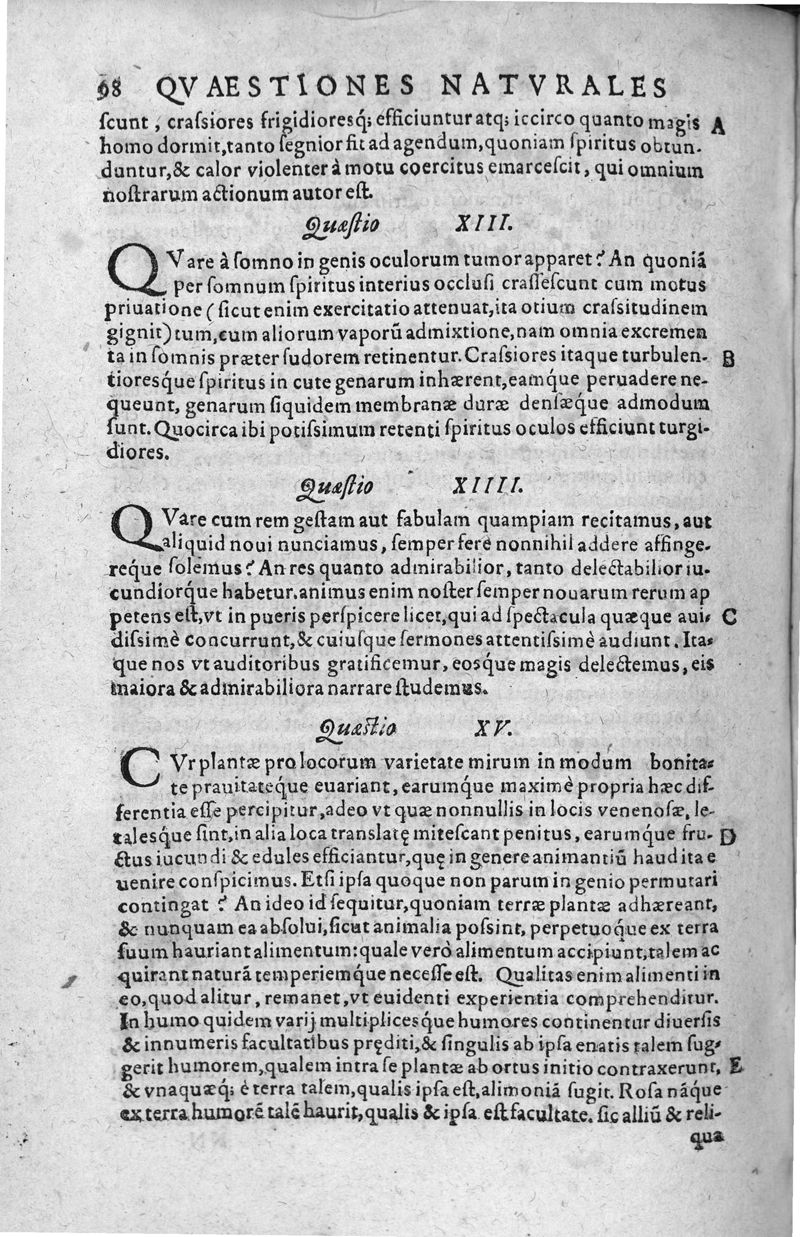 98 QVAESTIONES NATVRALES
ſcunt, craſsiores frigidioresq́; efficiuntur atq; iccirco quanto magis A
homo dormit, tanto ſegnior fit ad agendum, quoniam ſpiritus obtun-
duntur, & calor violenter à motu coercitus emarceſcit, qui omnium
noſtrarum actionum autor eſt.
Quæſtio XIII.
QVare à ſomno in genis oculorum tumor apparet? An quoniã
per ſomnum ſpiritus interius occluſi craſſeſcunt cum motus
priuatione (ſicut enim exercitatio attenuat, ita otium craſsitudinem
gignit) tum, cum aliorum vaporũ admixtione, nam omnia excremen
ta in ſomnis præter ſudorem retinentur. Craſsiores itaque turbulen- B
tioresq́ue ſpiritus in cute genarum inhærent, eamq́ue peruadere ne-
queunt, genarum ſiquidem membranæ duræ denſæq́ue admodum
ſunt. Quocirca ibi potiſsimum retenti ſpiritus oculos efficiunt turgi-
diores.
Quæſtio XIIII.
QVare cum rem geſtam aut fabulam quampiam recitamus, aut
aliquid noui nunciamus, ſemper ferè nonnihil addere affinge-
reque ſolemus? An res quanto admirabilior, tanto delectabilior iu-
cundiorq́ue habetur. animus enim noſter ſemper nouarum rerum ap
petens eſt, vt in pueris perſpicere licet, qui ad ſpectacula quæque aui- C
diſsimè concurrunt, & cuiuſque ſermones attentiſsimè audiunt. Ita-
que nos vt auditoribus gratificemur, eosq́ue magis delectemus, eis
maiora & admirabiliora narrare ſtudemus.
Quæſtio XV.
CVr plantæ pro locorum varietate mirum in modum bonita-
te prauitateq́ue euariant, earumque maximè propria hæc dif-
ferentia eſſe percipitur, adeo vt quæ nonnullis in locis venenoſæ, le-
talesq́ue ſint, in alia loca translatę miteſcant penitus, earumque fru- D
ctus iucundi & edules efficiantur, quę in genere animantiũ haud ita e
uenire conſpicimus. Etſi ipſa quoque non parum in genio permutari
contingat? An ideo id ſequitur, quoniam terræ plantæ adhæreant,
& nunquam ea abſolui, ſicut animalia poſsint, perpetuoque ex terra
ſuum hauriant alimentum: quale verò alimentum accipiunt, talem ac
quirant naturã temperiemq́ue neceſſe eſt. Qualitas enim alimenti in
eo, quod alitur, remanet, vt euidenti experientia comprehenditur.
In humo quidem varij multiplicesq́ue humores continentur diuerſis
& innumeris facultatibus pręditi, & ſingulis ab ipſa enatis talem ſug-
gerit humorem, qualem intra ſe plantæ ab ortus initio contraxerunt, E
& vnaquæq; è terra talem, qualis ipſa eſt, alimoniã ſugit. Roſa nãque
ex terra humorẽ talẽ haurit, qualis & ipſa eſt facultate. ſic alliũ & reli-
qua